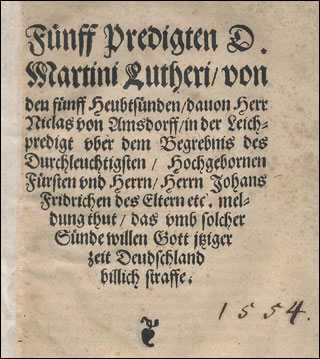 Fünff Predigten D.
Martini Lutheri/ von
den fünff Heubtsünden/ dauon Herr
Niclas von Amsdorff/ in der Leich-
predigt vber dem Begrebnis des
Durchleuchtigsten/ Hochgebornen
Fürsten vnd Herrn/ Herrn Johans
Fridrichen des Eltern etc. mel-
dung thut/ das vmb solcher
Sünde willen Gott jtziger
zeit Deudschland
billich straffe.
1554.